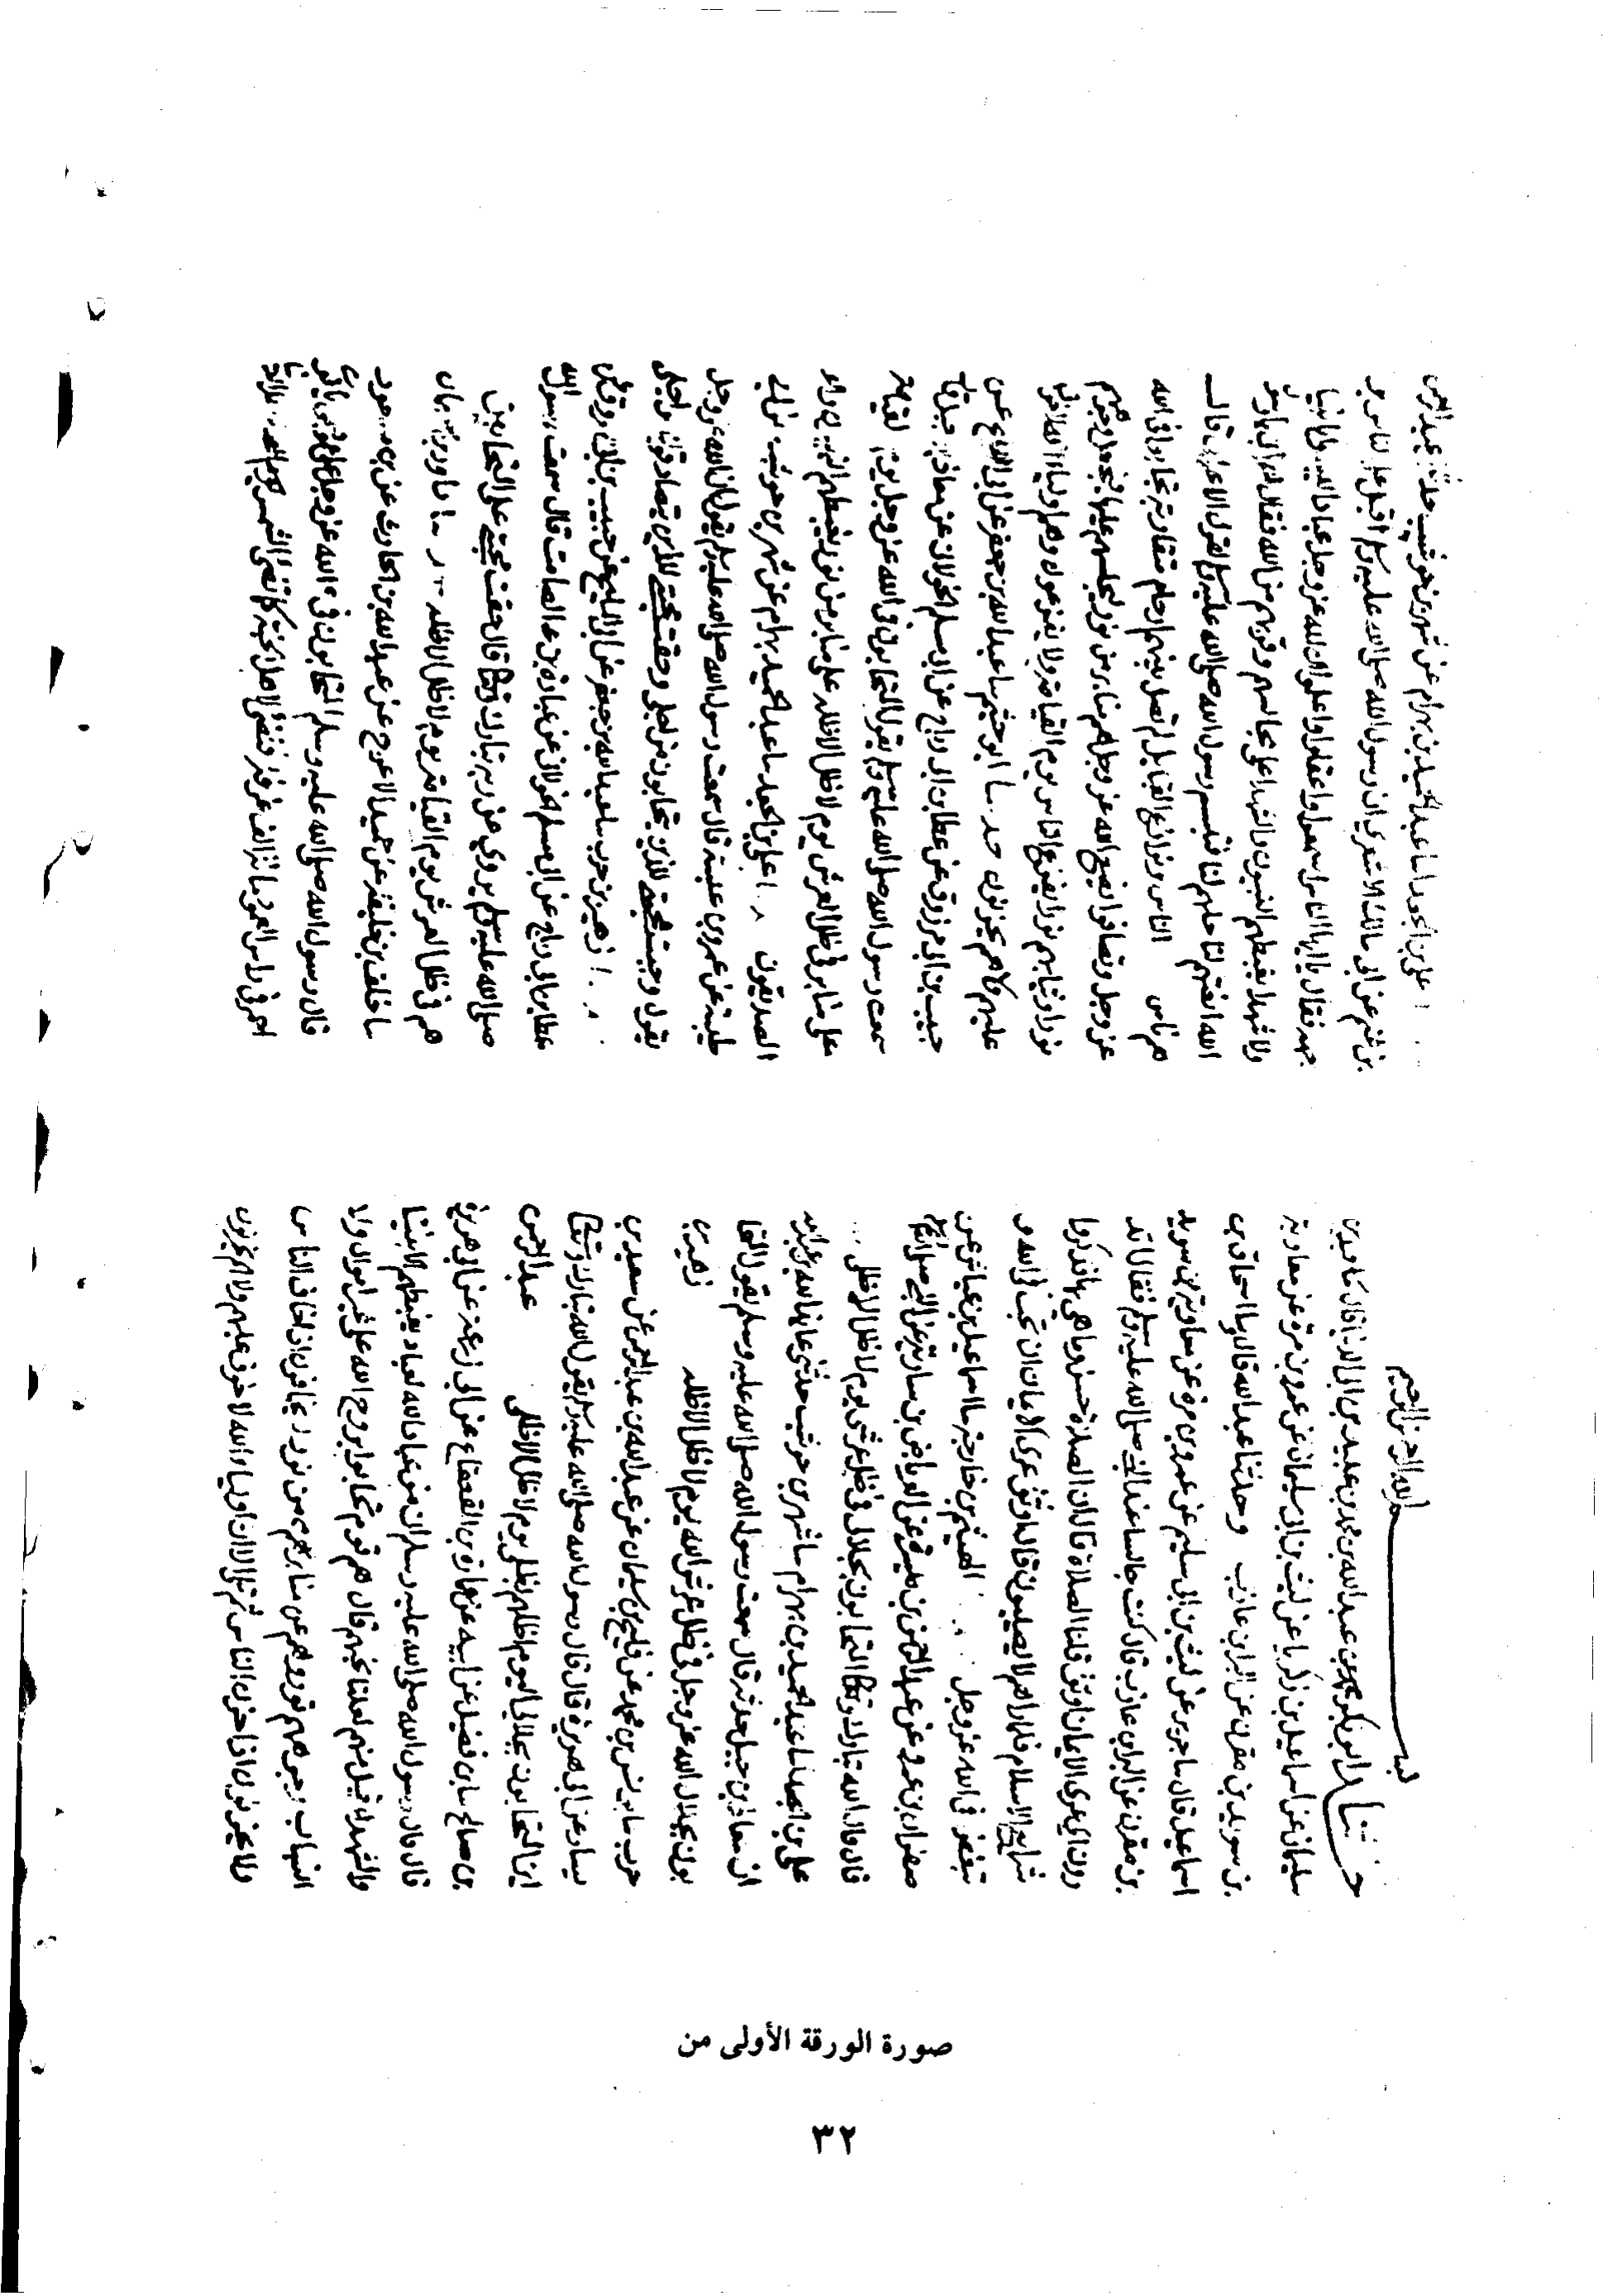 بسم الله الرحمن الرحيم
حدثنا ابو بكر عبد الله بن محمد بن عبيد بن ابي الدنيا قال
سليمان عن اسماعيل بن زكريا عن ليث بن ابي سليمان عن عمرو بن مرة عن معاوية
بن سويد بن مقرن عن البراء بن عازب وحدثنا عبد الله قال اسحاق بن
اسماعيل قال نا جرير عن ليث بن ابي سليم عن عمرو بن مرة عن معاوية بن سويد
بن مقرن عن البراء بن عازب قال كنت جالسا عند النبي صلى الله عليه وسلم فقال اتد
رون اي عرى الايمان اوثق قلنا الصلاة قال ان الصلاة حسنة وما هي بها فذكروا
شرايع الاسلام فلما راهم لا يصيبون قال اوثق عرى الايمان ان تحب في الله و
تبغض في الله عز وجل الهيثم بن خارجة نا اسماعيل بن عياش عن
صفوان بن عمرو عن عبد الرحمن بن ميسرة عن العرباض بن سارية عن النبي صلى الله
قال قال الله تبارك وتعالى المتحابون بجلالي في ظل عرشي يوم لا ظل الا ظلي
علي بن الجعد نا عبد الحميد بن بهرام نا شهر بن حوشب حدثني عايذ الله بن عبد الله
ان معاذ بن جبل حدثه قال سمعت رسول الله صلى الله عليه وسلم يقول المتحا
بون بجلال الله عز وجل في ظل عرش الله يوم لا ظل الا ظله زهير بن
حرب نا يونس بن محمد عن فليح بن سليمان عن عبد الله بن عبد الرحمن عن سعيد بن
يسار عن ابي هريرة قال قال رسول الله صلى الله عليه وسلم يقول الله تبارك وتعالى
اين المتحابون بجلالي اليوم اظلهم بظلي يوم لا ظل الا ظلي عبد الرحمن
بن صالح نا ابن فضيل عن ابيه عن عمارة بن القعقاع عن ابي زرعة عن ابي هريرة
قال قال رسول الله صلى الله عليه وسلم ان من عباد الله لعبادا يغبطهم الانبيا
والشهدا قيل من هم لعلنا نحبهم قال هم قوم تحابوا بروح الله على غير اموال ولا
انساب وجوههم نور وهم على منابر من نور لا يخافون ان خاف الناس
ولا يحزنون اذا حزن الناس ثم تلا الا ان اوليا الله لا خوف عليهم ولا هم يحزنون
علي بن الجعد نا عبد الحميد بن بهرام عن شهر بن حوشب حدثنا عبد الرحمن
بن غنم عن ابي مالك الاشعري ان رسول الله صلى الله عليه وسلم اقبل على الناس بو
جهه فقال يا ايها الناس اسمعوا واعقلوا واعلموا ان لله عز وجل عبادا ليسوا بانبيا
ولا شهدا يغبطهم النبيون والشهدا على مجالسهم وقربهم من الله فقال
الله انعتهم لنا حلهم لنا فتبسم رسول الله صلى الله عليه وسلم لقول الاعرابي قال
هم ناس الناس ونوازع القبايل لم تصل بينهم ارحام متقاربة تحابوا في الله
عز وجل وتصافوا يضع الله عز وجل لهم منابر من نور فيجلسهم عليها فيجعل وجوههم
نورا وثيابهم نورا يفزع الناس يوم القيامة ولا يفزعون وهم اوليا الله لا خوف
عليهم ولا هم يحزنون ابو خيثمة نا عبد الله بن جعفر عن ابي المليح عن
حبيب بن ابي مرزوق عن عطا بن ابي رباح عن ابي مسلم الخولاني عن معاذ بن جبل قال
سمعت رسول الله صلى الله عليه وسلم يقول المتحابون في الله عز وجل يوم القيامة
على منابر في ظل العرش يوم لا ظل الا ظله على منابر من نور يغبطهم النبيون و
الصديقون علي بن الجعد نا عبد الحميد بن بهرام عن شهر بن حوشب
ظبية عن عمرو بن عبسة قال سمعت رسول الله صلى الله عليه وسلم يقول ان الله عز وجل
يقول وجبت محبتي للذين يتحابون من اجلي وحقت محبتي للذين يتصادقون من اجلي
زهير بن حرب نا عبد الله بن جعفر عن ابي المليح عن حبيب بن ابي مرزوق عن
عطا بن ابي رباح عن ابي مسلم الخولاني عن عبادة بن الصامت قال سمعت رسول الله
صلى الله عليه وسلم يروي عن ربه تبارك وتعالى قال حقت محبتي على المتحابين
هم في ظل العرش يوم القيامة يوم لا ظل الا ظله
نا خلف بن خليفة عن حميد الاعرج عن عبد الله بن الحارث عن بن مسعود
قال رسول الله صلى الله عليه وسلم المتحابون في الله عز وجل على
احمر في راس العمود غرفة تضي لاهل الجنة كما تضي الشمس
صورة الورقة الأولى من
٣٢